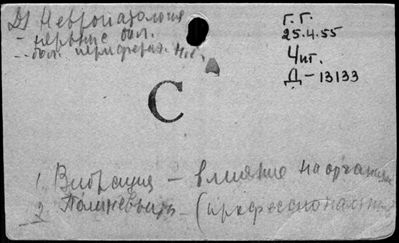 Д Невропатология
- нервные бол.
- бол. перифери. н.с.
Г. Г.
25.4.55
Чит.
Д-13133
С
1. Вибрация - влияние на организм
2 Полиневрит - (профессиональн